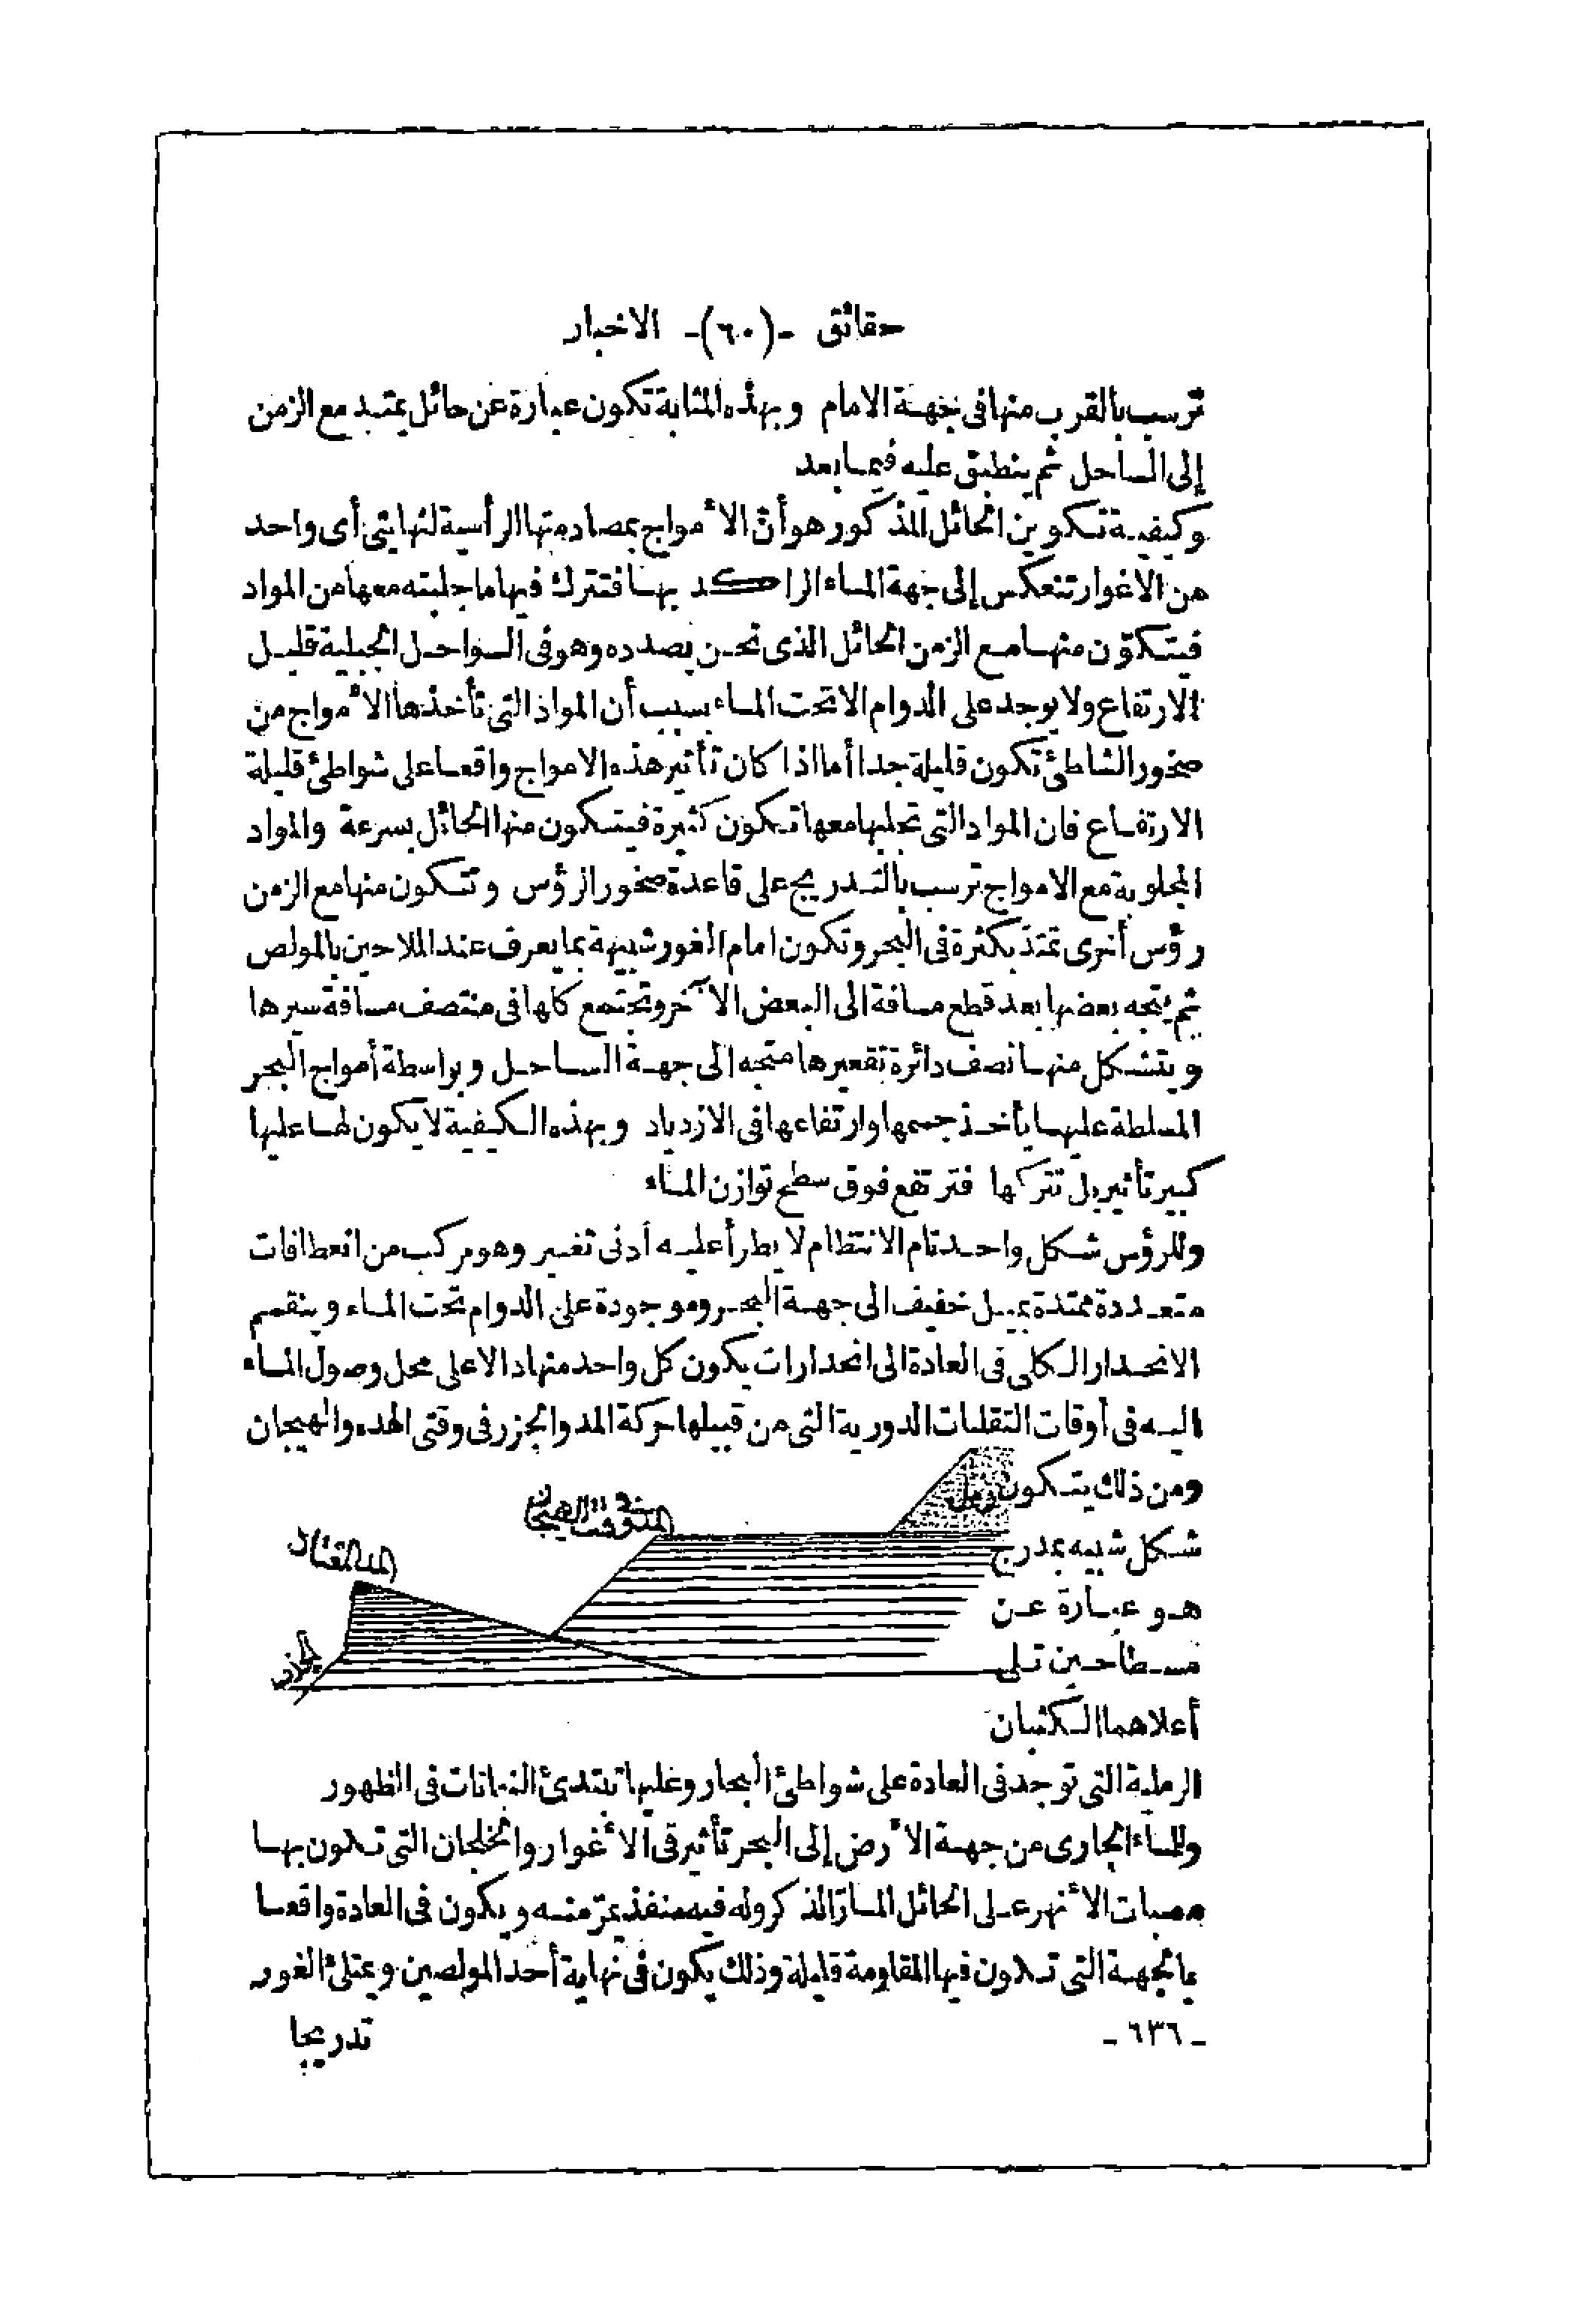 حقائق -(٦٠)- الاخبار
ترسب بالقرب منها فى جهة الامام وبهذه المثابة تكون عبارة عن حائل يمتد مع الزمن
إلى الساحل ثم ينطبق عليه فيما بعد
وكيفية تكوين الحائل المذكور هو أن الأمواج بمصادمتها الرأسية لنهايتى أى واحد
من الاغوار تنعكس إلى جهة الماء الراكد بها فتترك فيها ما جلبته معها من المواد
فيتكوّن منها مع الزمن الحائل الذى نحن بصدده وهو فى السواحل الجبلية قليل
الارتفاع ولا يوجد على الدوام الا تحت الماء بسبب أن المواد التى تأخذها الأمواج من
صخور الشاطئ تكون قليلة جدا أما اذا كان تأثير هذه الامواج واقعا على شواطئ قليلة
الارتفاع فان المواد التى تجلبها معها تكون كثيرة فيتكون منها الحائل بسرعة والمواد
المجلوبة مع الامواج ترسب بالتدريج على قاعدة صخور الرؤس وتتكون منها مع الزمن
رؤس أخرى تمتد بكثرة فى البحر وتكون امام الغور شبيهة بما يعرف عند الملاحين بالمولص
ثم يتجه بعضها بعد قطع مسافة الى البعض الآخر وتجتمع كلها فى منتصف مسافة سيرها
ويتشكل منها نصف دائرة تقعيرها متجه الى جهة الساحل وبواسطة أمواج البحر
المسلطة عليها يأخذ جسمها وارتفاعها فى الازدياد وبهذه الكيفية لا يكون لها عليها
كبير تأثير بل تتركها فترتفع فوق سطح توازن الماء
وللرؤس شكل واحد تام الانتظام لا يطرأ عليه أدنى تغيير وهو مركب من انعطافات
متعددة ممتدة بميل خفيف الى جهة البحر وموجودة على الدوام تحت الماء وينقسم
الانحدار الكلى فى العادة الى انحدارات يكون كل واحد منها دالا على محل وصول الماء
اليه فى أوقات التقلبات الدورية التى من قبيلها حركة المد والجزر فى وقتى الهدء والهيجان
ومن ذلك يتكون
رمل
المد وقت الهيجان
شكل شبيه بمدرج
المد المعتاد
هو عبارة عن
مسطاحين تلى
الجزر
أعلاهما الكثبان
الرملية التى توجد فى العادة على شواطئ البحار وعليها تبتدئ النباتات فى الظهور
وللماء الجارى من جهة الأرض إلى البحر تأثير فى الأغوار والخلجان التى تكون بها
مصبات الأنهر على الحائل المارّ الذكر وله فيه منفذ يمرّ منه ويكون فى العادة واقعا
بالجهة التى تكون فيها المقاومة قليلة وذلك يكون فى نهاية أحد المولصين ويمتلئ الغور
تدريجا
- ٦٣٦ -